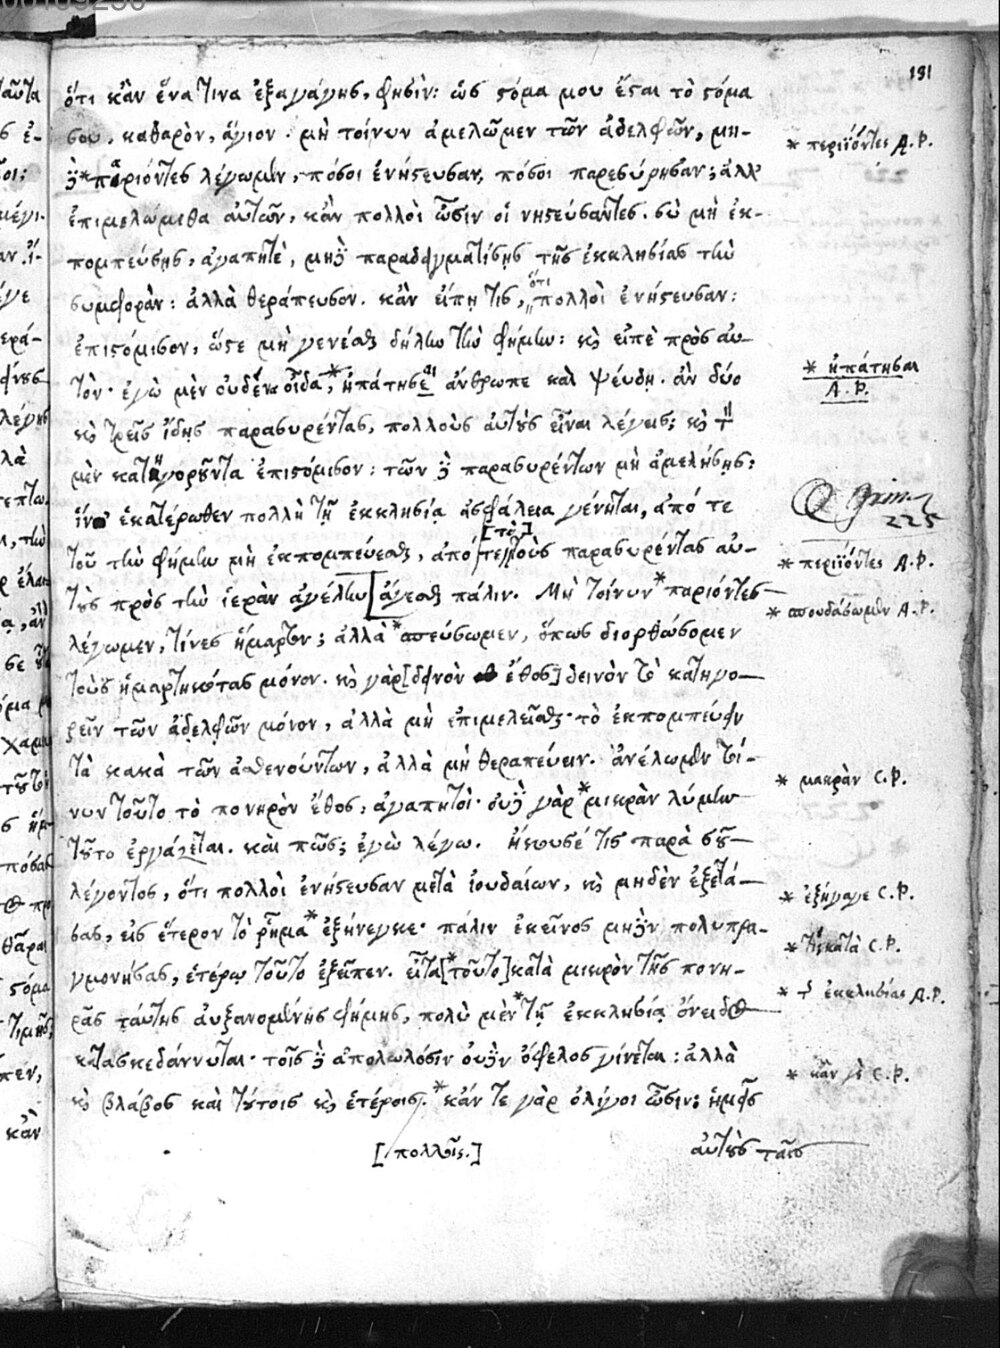 181
ὅτι κἂν ἕνα τινα ἐξαγάγῃς, φησὶν: ὡς στόμα μου ἔσται τὸ στόμα
σου, καθαρὸν, ἅγιον. μὴ τοίνυν ἀμελῶμεν τῶν ἀδελφῶν, μη-
δὲ * παριόντες λέγωμεν, πόσοι ἐνήστευσαν, πόσοι παρεσύρησαν; ἀλλ'
ἐπιμελώμεθα αὐτῶν, κἂν πολλοὶ ὦσιν οἱ νηστεύσαντες. σὺ μὴ ἐκ-
πομπεύσῃς, ἀγαπητὲ, μηδὲ παραδειγματίσῃς τῆς ἐκκλησίας τὴν
συμφορὰν: ἀλλὰ θεράπευσον. κἂν εἴπῃ τις, ὅτι πολλοὶ ἐνήστευσαν:
ἐπιστόμισον, ὥστε μὴ γενέσθαι δήλην τὴν φήμην: καὶ εἰπὲ πρὸς αὐ-
τὸν· ἐγὼ μὲν οὐδένα οἶδα, * ἠπάτησε ἄνθρωπε καὶ ψεύδῃ. ἂν δύο
καὶ τρεῖς ἴδῃς παρασυρέντας, πολλοὺς αὐτοὺς εἶναι λέγεις; καὶ τὸν
μὲν κατηγοροῦντα ἐπιστόμισον: τῶν δὲ παρασυρέντων μὴ ἀμελήσῃς:
ἵνα ἑκατέρωθεν πολλὴ τῇ ἐκκλησίᾳ ἀσφάλεια γένηται, ἀπό τε
τοῦ τὴν φήμην μὴ ἐκπομπεύεσθαι, ἀπό τε [τὸ] τοὺς παρασυρέντας αὐ-
τοὺς πρὸς τὴν ἱερὰν ἀγέλην ἄγεσθαι πάλιν. Μὴ τοίνυν * παριόντες
λέγωμεν, τίνες ἥμαρτον; ἀλλὰ * σπεύσωμεν, ὅπως διορθώσομεν
τοὺς ἡμαρτηκότας μόνον. καὶ γὰρ [δεινὸν ἔθος] δεινὸν τὸ κατηγο-
ρεῖν τῶν ἀδελφῶν μόνον, ἀλλὰ μὴ ἐπιμελεῖσθαι· τὸ ἐκπομπεύειν
τὰ κακὰ τῶν ἀσθενούντων, ἀλλὰ μὴ θεραπεύειν. ἀνέλωμεν τοί-
νυν τοῦτο τὸ πονηρὸν ἔθος, ἀγαπητοὶ· οὐδὲ γὰρ * μικρὰν λύμην
τοῦτο ἐργάζεται. καὶ πῶς; ἐγὼ λέγω. Ἤκουσέ τις παρὰ σοῦ
λέγοντος, ὅτι πολλοὶ ἐνήστευσαν μετὰ ἰουδαίων, καὶ μηδὲν ἐξετά-
σας, εἰς ἕτερον τὸ ῥῆμα * ἐξήνεγκε· πάλιν ἐκεῖνος μηδὲν πολυπρα-
γμονήσας, ἑτέρῳ τοῦτο ἐξεῖπεν. εἶτα [* τοῦτο] κατὰ μικρὸν τῆς πονη-
ρᾶς ταύτης αὐξανομένης φήμης, πολὺ μὲν * τῇ ἐκκλησίᾳ ὄνειδος
κατασκεδάννυται· τοῖς δὲ ἀπολωλόσιν οὐδὲν ὄφελος γίνεται: ἀλλὰ
καὶ βλάβος καὶ τούτοις καὶ ἑτέροις. * κἄν τε γὰρ ὀλίγοι ὦσιν: ἡμεῖς
[πολλοῖς.]
αὐτοὺς ταῖς
* περιϊόντες A.P.
* ἠπάτησαι
A.P.
225
* περιϊόντες A.P.
* σπουδάσωμεν A.P.
* μακρὰν C.P.
* ἐξήγαγε C.P.
* τῆς κατὰ C.P.
* τ ἐκκλησίας A.P.
* κἂν γὰρ C.P.